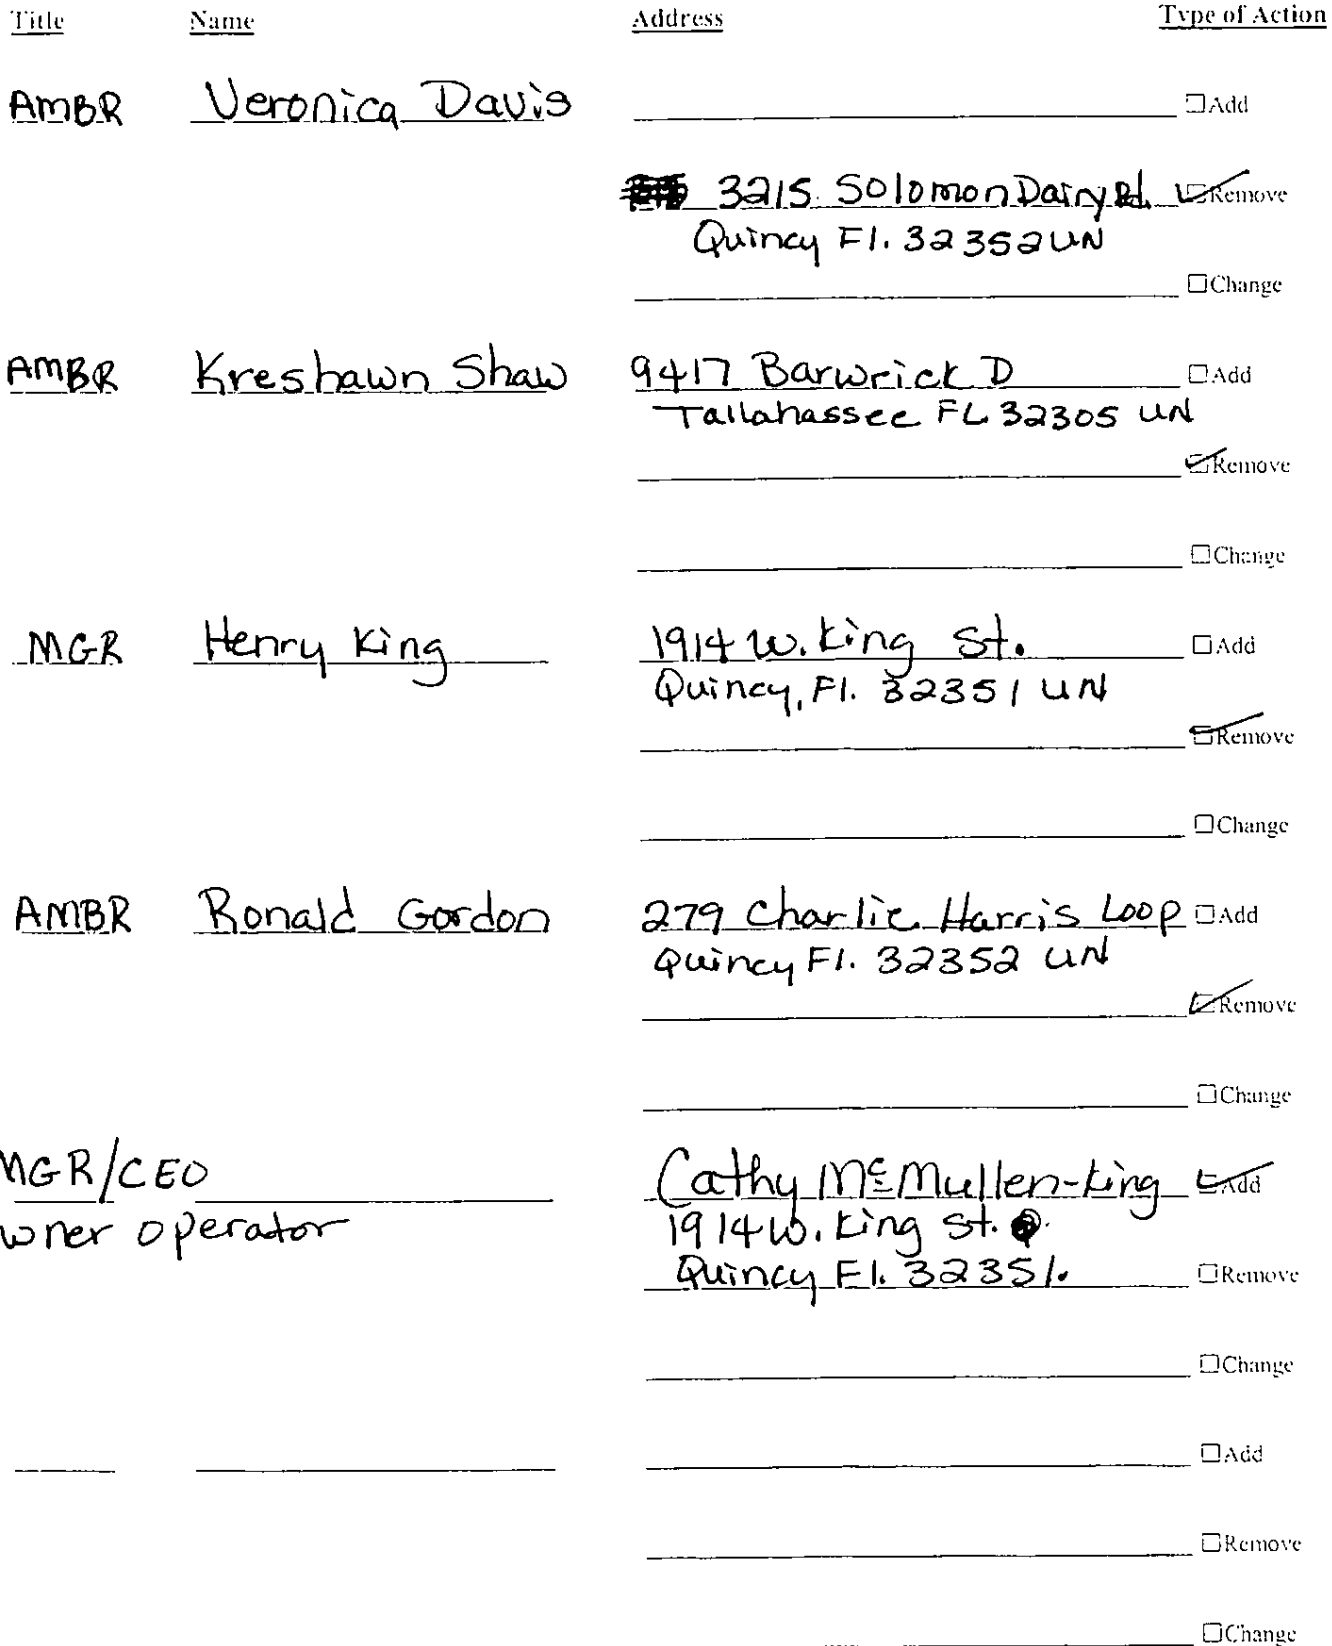 Title Name Address Type of Action
AMBR Veronica Davis ☐Add
3215 Solomon Dairy Rd. ☑Remove
Quincy Fl. 32352 UN
☐Change
AMBR Kreshawn Shaw 9417 Barwrick D ☐Add
Tallahassee FL 32305 UN
☑Remove
☐Change
MGR Henry King 1914 W. King St. ☐Add
Quincy, Fl. 32351 UN
☑Remove
☐Change
AMBR Ronald Gordon 279 Charlie Harris Loop ☐Add
Quincy Fl. 32352 UN
☑Remove
☐Change
MGR/CEO Cathy McMullen-King ☑Add
wner operator 1914 W. King St.
Quincy Fl. 32351. ☐Remove
☐Change
☐Add
☐Remove
☐Change